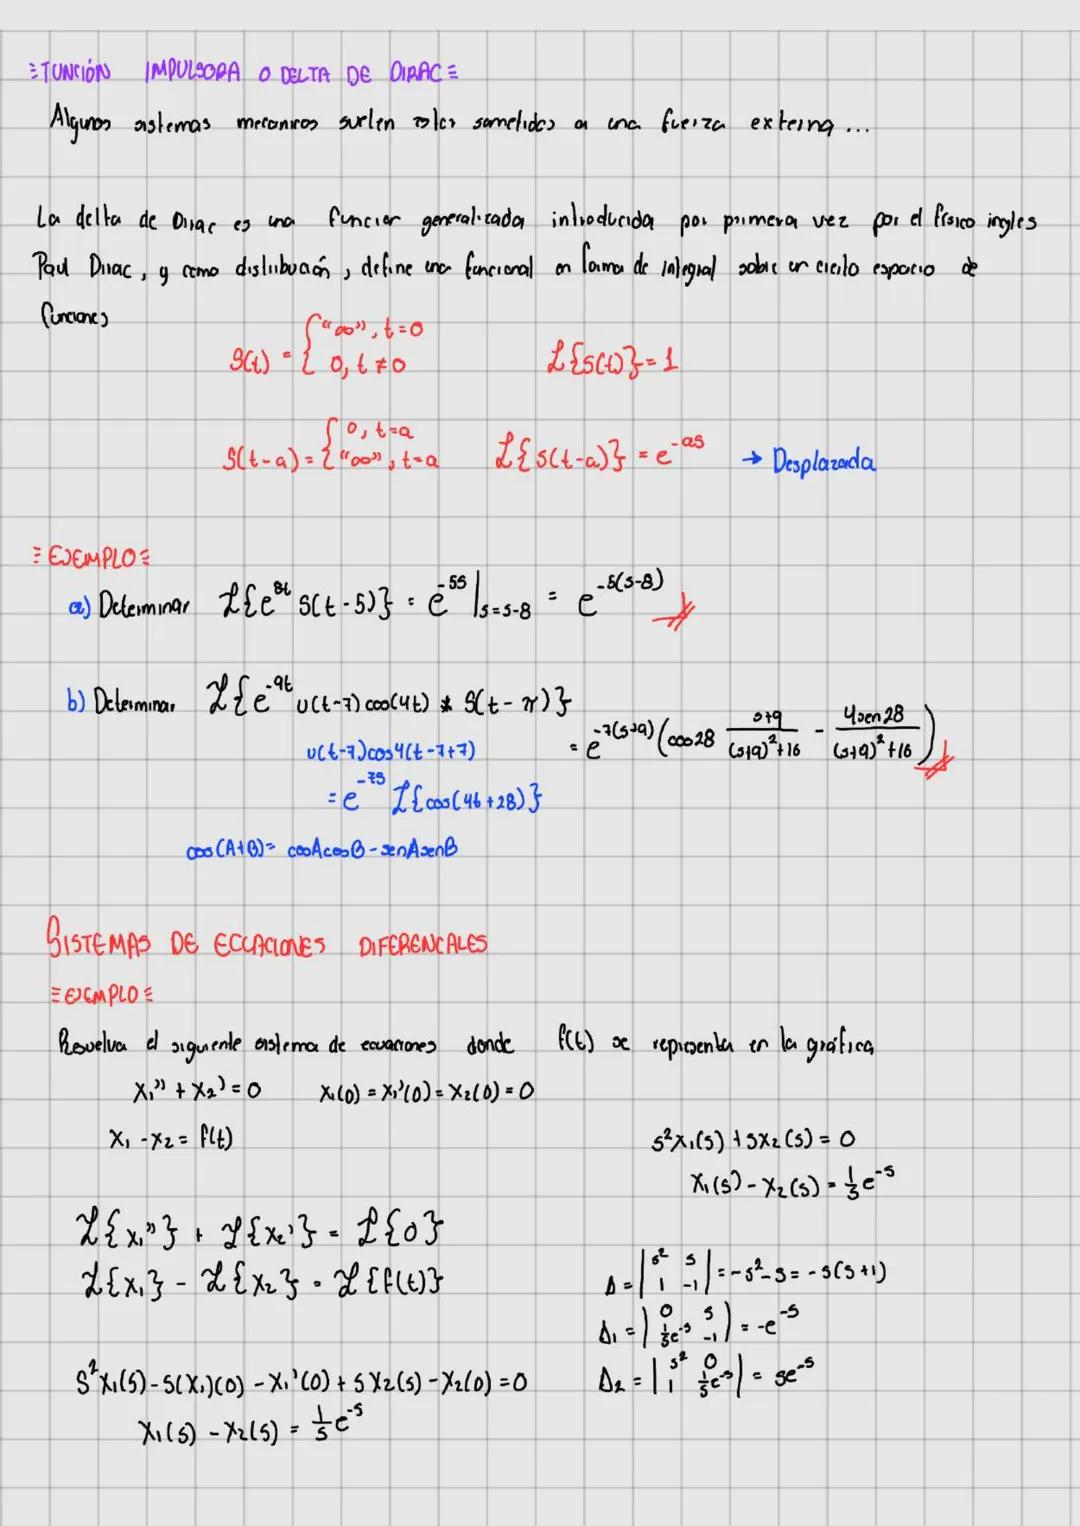 ≡ FUNCIÓN IMPULSORA O DELTA DE DIRAC ≡
Algunos sistemas mecanicos suelen estar sometidos a una fuerza externa ...
La delta de Dirac es una funcion generalizada introducida por primera vez por el fisico ingles
Paul Dirac, y como distribución, define una funcional en forma de integral sobre un cierto espacio de
funciones
δ(t) = { "∞", t=0
0, t≠0
ℒ{δ(t)} = 1
δ(t-a) = { 0, t=a
"∞", t=a
ℒ{δ(t-a)} = e^{-as} → Desplazada
≡ EJEMPLO ≡
a) Determinar ℒ{e^{8t} δ(t-5)} = e^{-5s} |_{s=s-8} = e^{-5(s-8)}
b) Determinar ℒ{e^{-9t} u(t-7) cos(4t) * δ(t-π)}
= e^{-7(s+9)} (cos28 (s+9)/((s+9)²+16) - 4sen28/((s+9)²+16))
u(t-7)cos4(t-7+7)
= e^{-7s} ℒ{cos(4t+28)}
cos(A+B) = cosAcosB - senAsenB
SISTEMAS DE ECUACIONES DIFERENCALES
≡ EJEMPLO ≡
Resuelva el siguiente sistema de ecuaciones donde f(t) se representa en la gráfica
X₁'' + X₂' = 0 X₁(0) = X₁'(0) = X₂(0) = 0
X₁ - X₂ = f(t)
s²X₁(s) + sX₂(s) = 0
X₁(s) - X₂(s) = 1/s e^{-s}
ℒ{X₁''} + ℒ{X₂'} = ℒ{0}
ℒ{X₁} - ℒ{X₂} = ℒ{f(t)}
Δ = | s² s ; 1 -1 | = -s² - s = -s(s+1)
Δ₁ = | 0 s ; 1/s e^{-s} -1 | = -e^{-s}
Δ₂ = | s² 0 ; 1 1/s e^{-s} | = se^{-s}
S²X₁(s) - S(X₁)(0) - X₁'(0) + SX₂(s) - X₂(0) = 0
X₁(s) - X₂(s) = 1/s e^{-s}